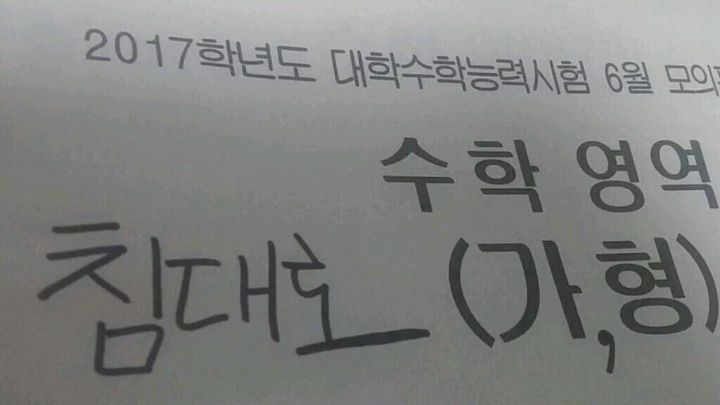 2017학년도 대학수학능력시험 6월 모의
수학 영역
침대로 (가,형)